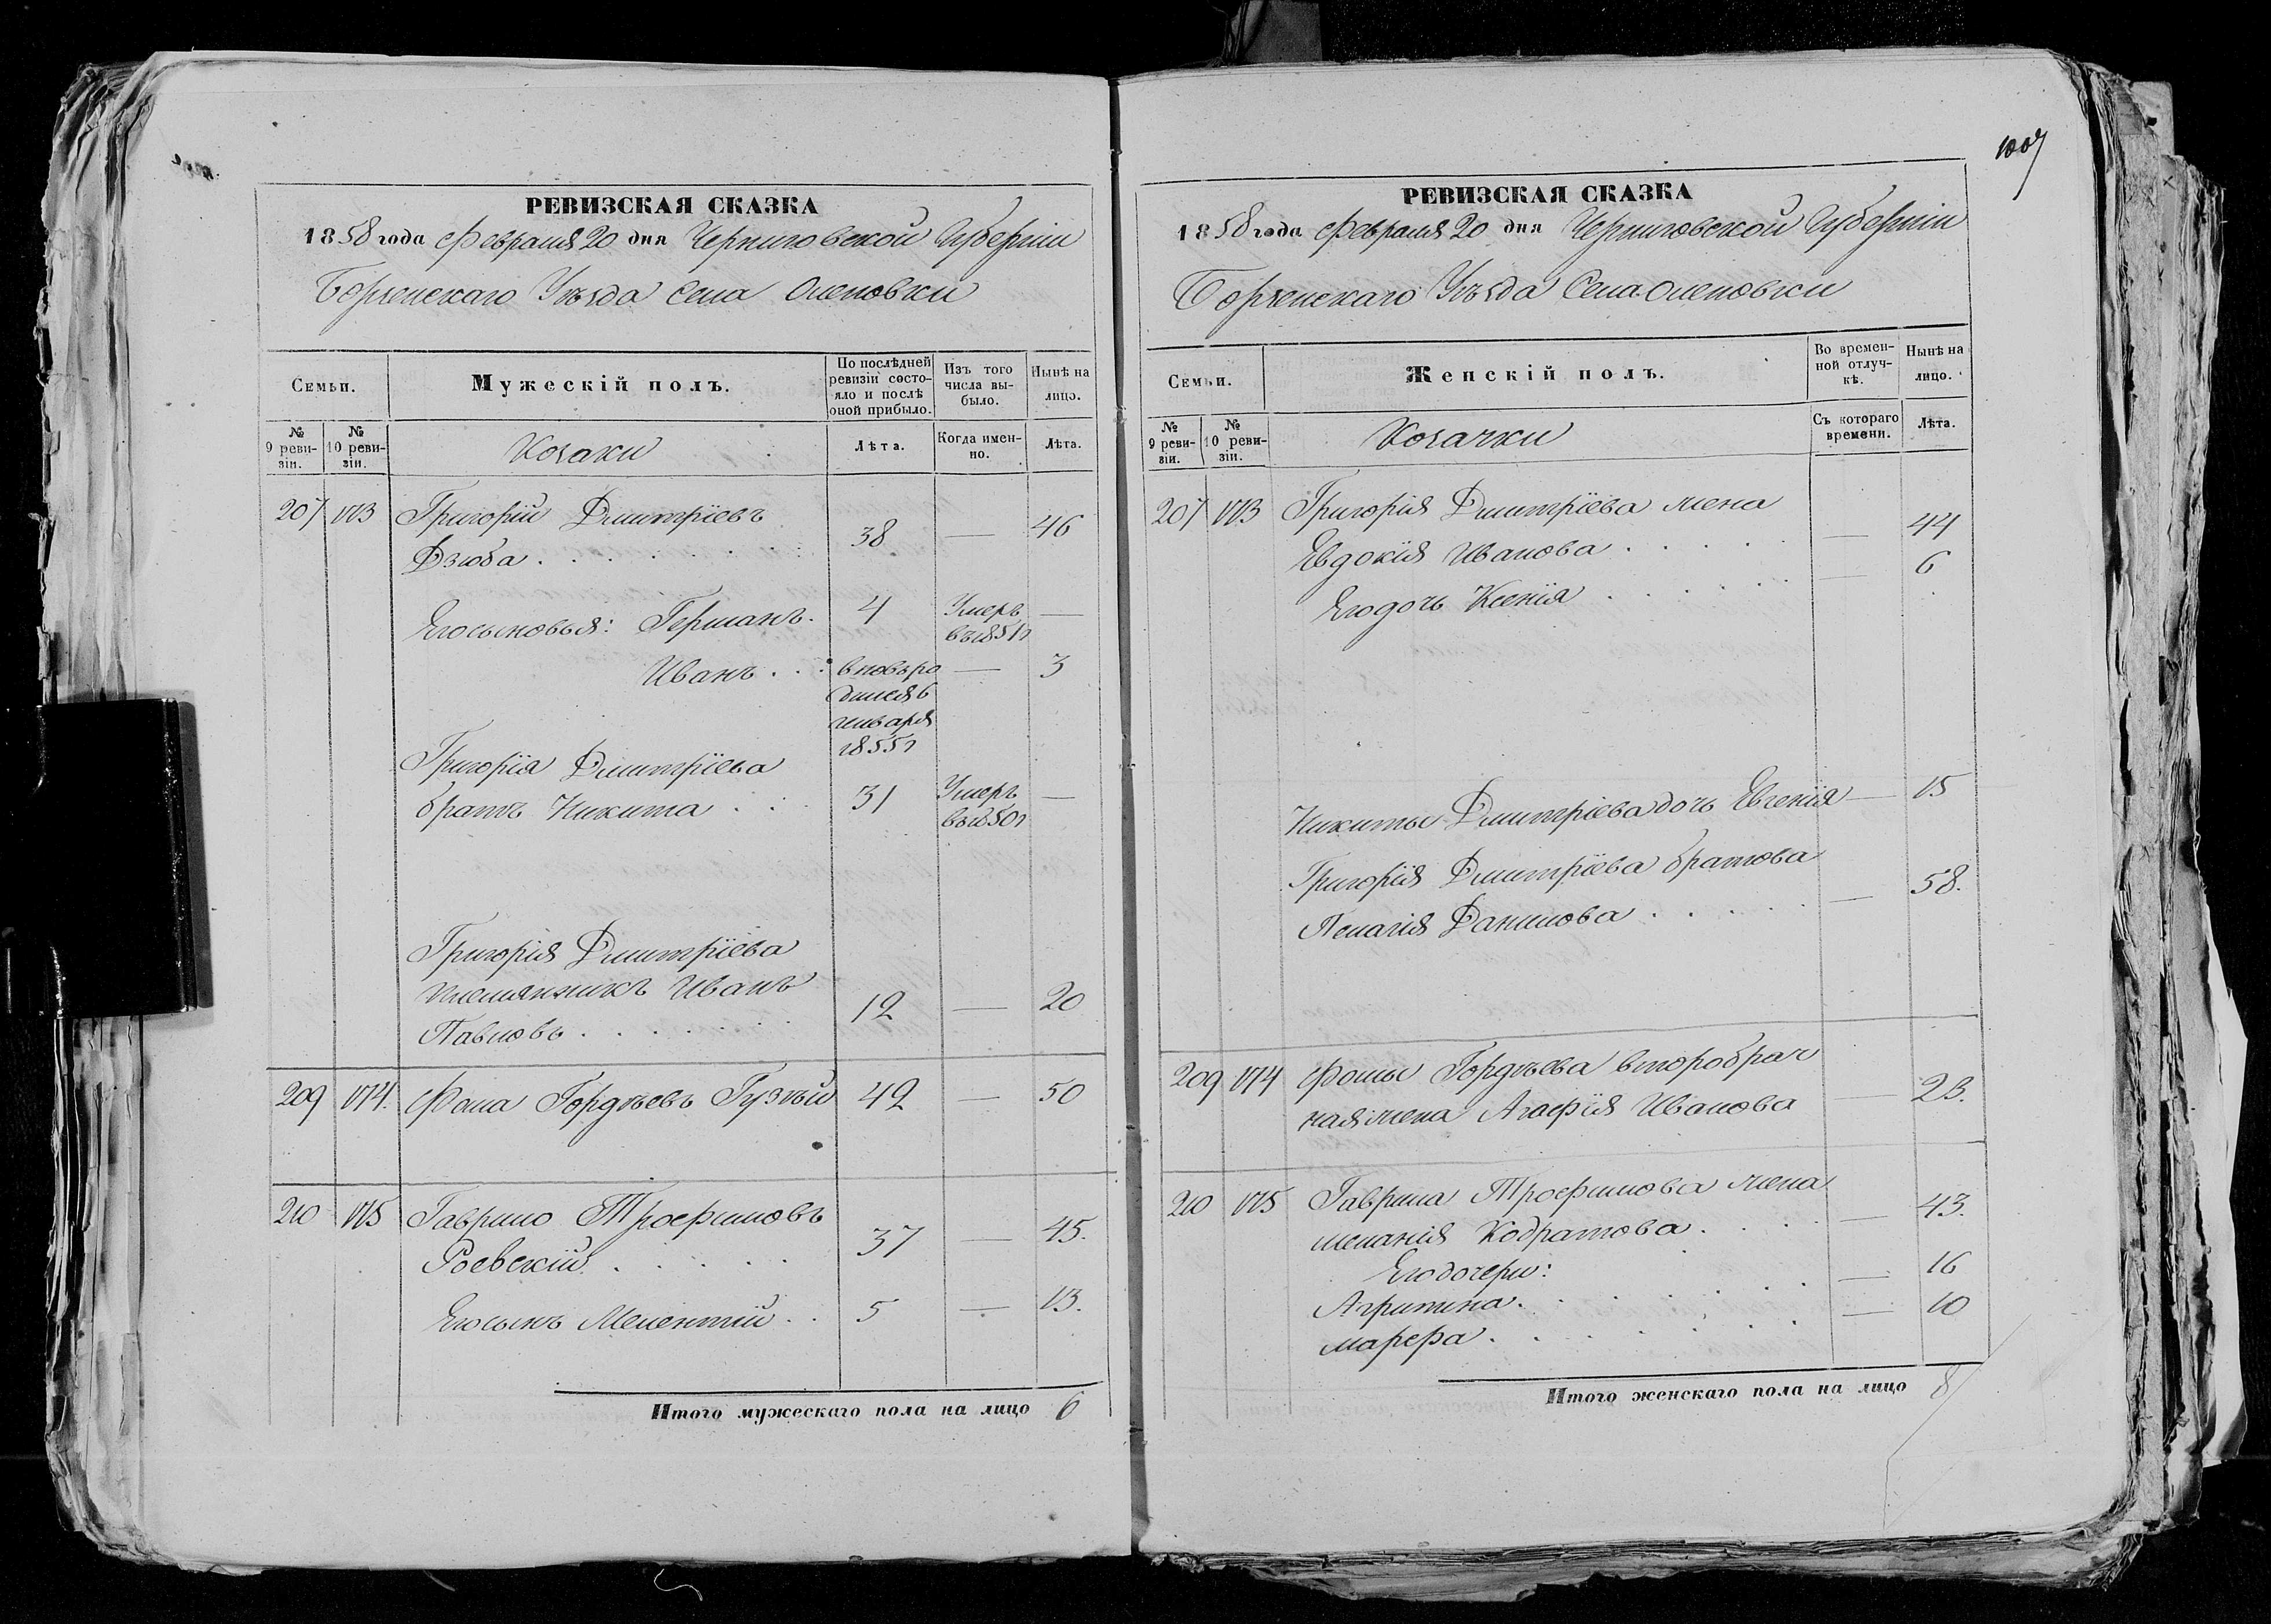 РЕВИЗСКАЯ СКАЗКА
1858 года Февраля 20 дня Черниговской Губерніи
Борзенскаго Уѣзда Села Оленовки
Семьи.
Мужескій полъ.
По послѣдней ревизіи состояло и послѣ оной прибыло.
Изъ того числа выбыло.
Нынѣ на лицо.
№ 9 ревизіи.
№ 10 ревизіи.
Козаки
Лѣта.
Когда именно.
Лѣта.
207 173 Григорій Дмитріевъ
Дзюба . . . . . . . 38 — 46
Его сыновья: Германъ. 4 Умеръ въ 1851 г —
Иванъ . . . вновь ро — 3
дился 6
января
1855 г
Григорія Дмитріева
братъ Никита . . . 31 Умеръ въ 1850 г —
Григорія Дмитріева
племянникъ Иванъ
Павловъ . . . . . . . 12 — 20
209 174. Фома Гордѣевъ Гузѣй 42 — 50
210 175 Гаврило Трофимовъ
Роевскій . . . . . 37 — 45.
Его сынъ Мелентій . . 5 — 13.
Итого мужескаго пола на лицо 6
1007
РЕВИЗСКАЯ СКАЗКА
1858 года Февраля 20 дня Черниговской Губерніи
Борзенскаго Уѣзда Села Оленовки
Семьи.
Женскій полъ.
Во временной отлучкѣ.
Нынѣ на лицо.
№ 9 ревизіи.
№ 10 ревизіи.
Козачки
Съ котораго времени.
Лѣта.
207 173 Григорія Дмитріева жена
Евдокія Иванова . . . . . — 44
Его дочь Ксенія . . . . . — 6
Никиты Дмитріева дочь Евгенія — 15
Григорія Дмитріева братова
Пелагія Данилова . . . . . — 58.
209 174 Фомы Гордѣева второбрач
ная жена Агафія Иванова — 23.
210 175 Гаврила Трофимова жена
меланія Кодратова . . . . — 43.
Его дочери:
Агрипина . . . . . . . — 16
марфа . . . . . . . — 10
Итого женскаго пола на лицо 8